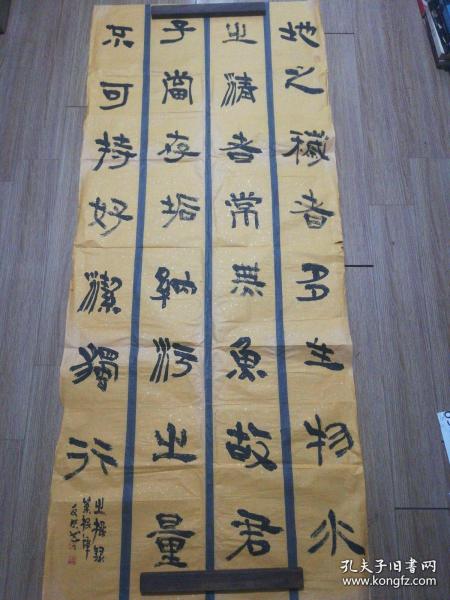 地之穢者多生物水
之清者常無魚故君
子當存垢納汚之量
不可持好潔獨行
之操錄
菜根譚
孔夫子旧书网
www.kongfz.com